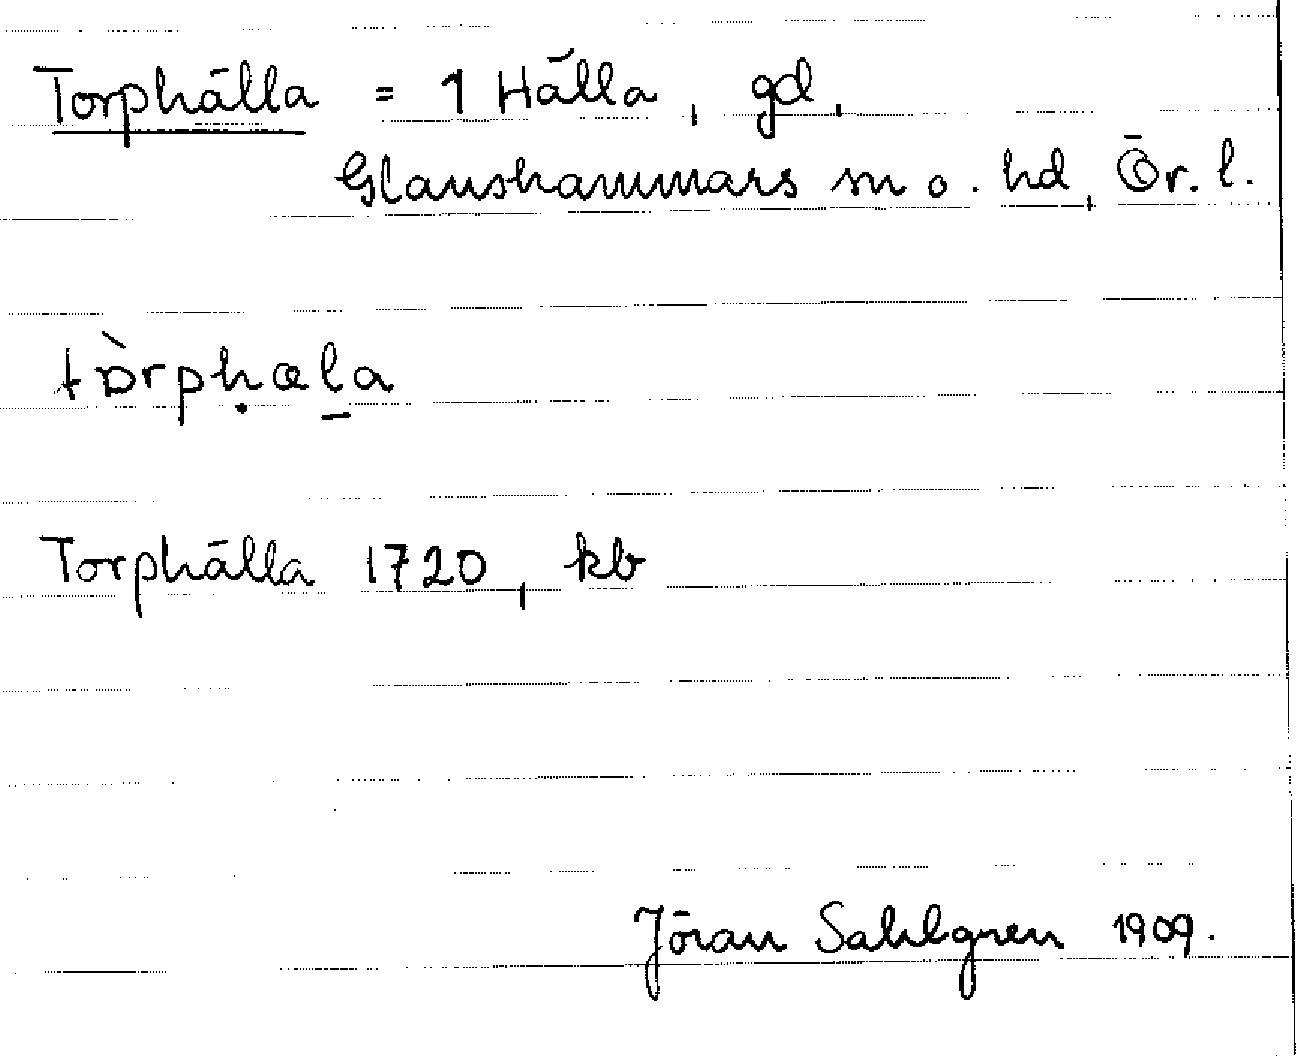 Torphälla = 1 Hälla, gd,
Glanshammars sn o. hd, Ör. l.
tòrpḥæl̲a
Torphälla 1720, kb
Jöran Sahlgren 1909.